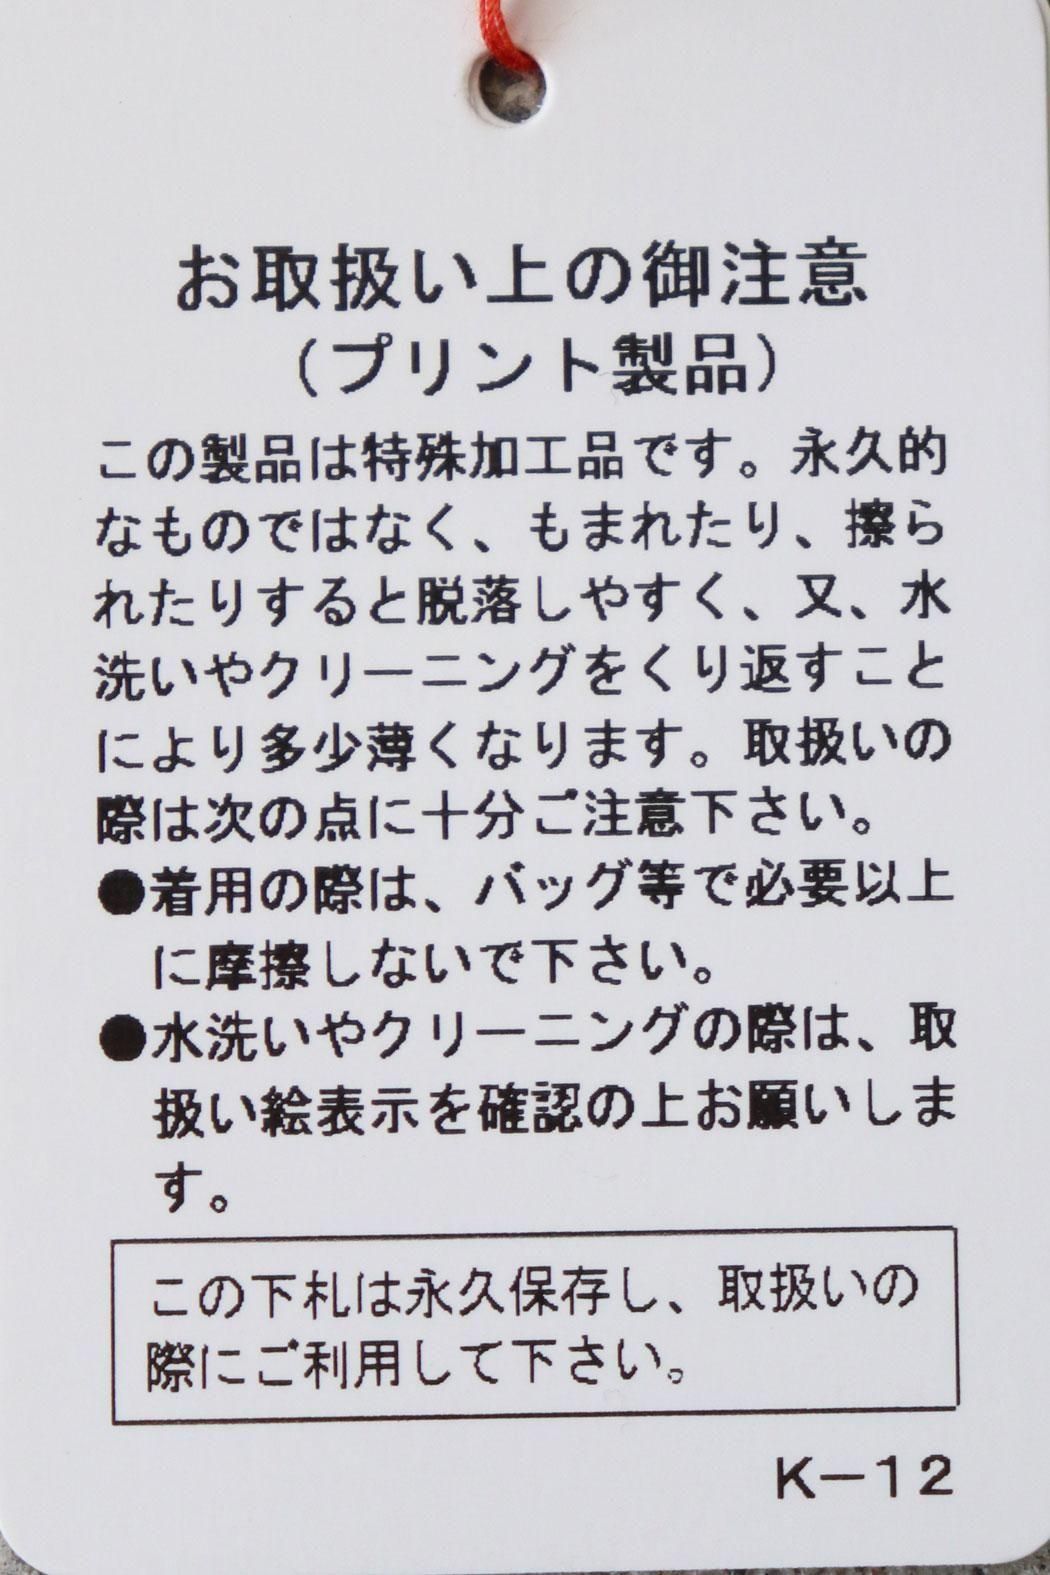 お取扱い上の御注意
(プリント製品)
この製品は特殊加工品です。永久的
なものではなく、もまれたり、擦ら
れたりすると脱落しやすく、又、水
洗いやクリーニングをくり返すこと
により多少薄くなります。取扱いの
際は次の点に十分ご注意下さい。
●着用の際は、バッグ等で必要以上
に摩擦しないで下さい。
●水洗いやクリーニングの際は、取
扱い絵表示を確認の上お願いしま
す。
この下札は永久保存し、取扱いの
際にご利用して下さい。
K－12